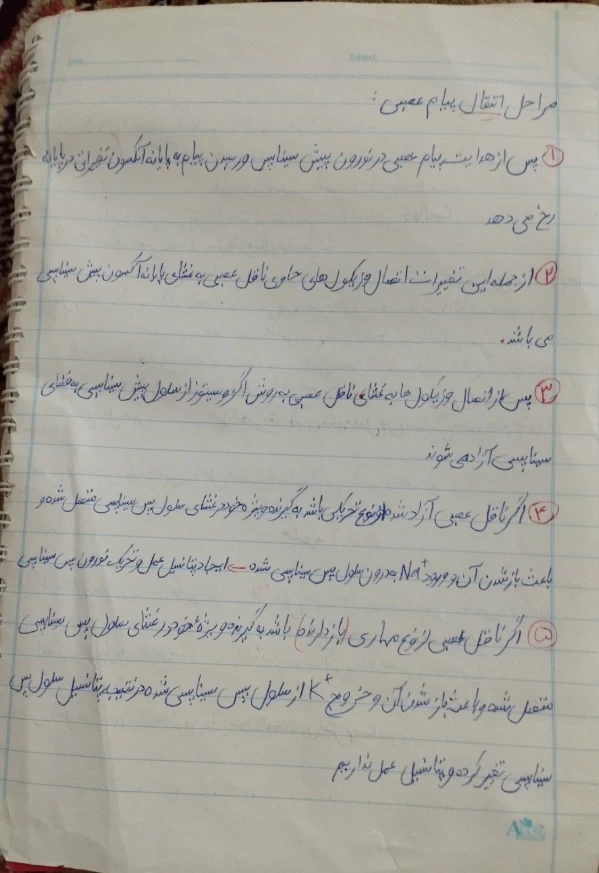 مراحل انتقال پیام عصبی :
① پس از هدایت پیام عصبی در نورون پیش سیناپس و رسیدن پیام به پایانه آکسون تغییراتی در پایانه
رخ می دهد
② از جمله این تغییرات اتصال وزیکول های حاوی ناقل عصبی به غشای پایانه آکسون پیش سیناپسی
می باشد.
③ پس از اتصال وزیکول ها به غشای ناقل عصبی به روش اگزوسیتوز از سلول پیش سیناپسی به فضای
سیناپسی آزاد می شوند
④ اگر ناقل عصبی آزاد شده از نوع تحریکی باشد به گیرنده ویژه خود در غشای سلول پس سیناپسی متصل شده و
باعث باز شدن آن و ورود Na+ به درون سلول پس سیناپسی شده ← ایجاد پتانسیل عمل و تحریک نورون پس سیناپسی
⑤ اگر ناقل عصبی از نوع مهاری (بازدارنده) باشد به گیرنده ویژهٔ خود در غشای سلول پس سیناپسی
متصل شده و باعث باز شدن آن و خروج K+ از سلول پس سیناپسی شده در نتیجه پتانسیل سلول پس
سیناپسی تغیر کرده و پتانسیل عمل نداریم